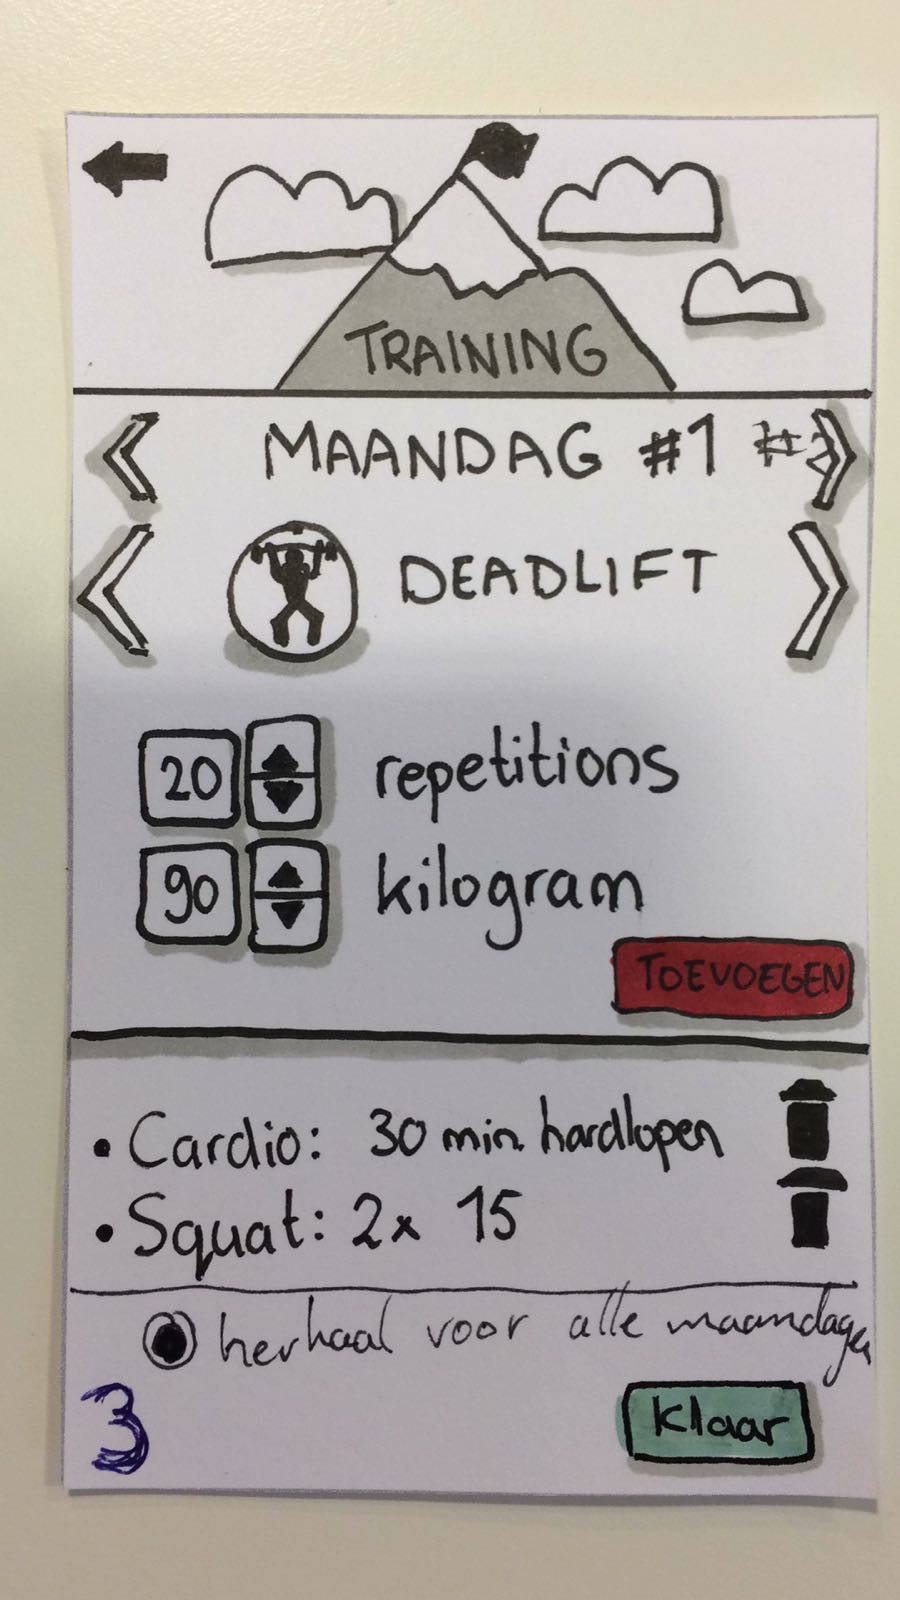 TRAINING
MAANDAG #1 #2
DEADLIFT
20 repetitions
90 kilogram
TOEVOEGEN
• Cardio: 30 min. hardlopen
• Squat: 2x 15
herhaal voor alle maandagen
3
Klaar